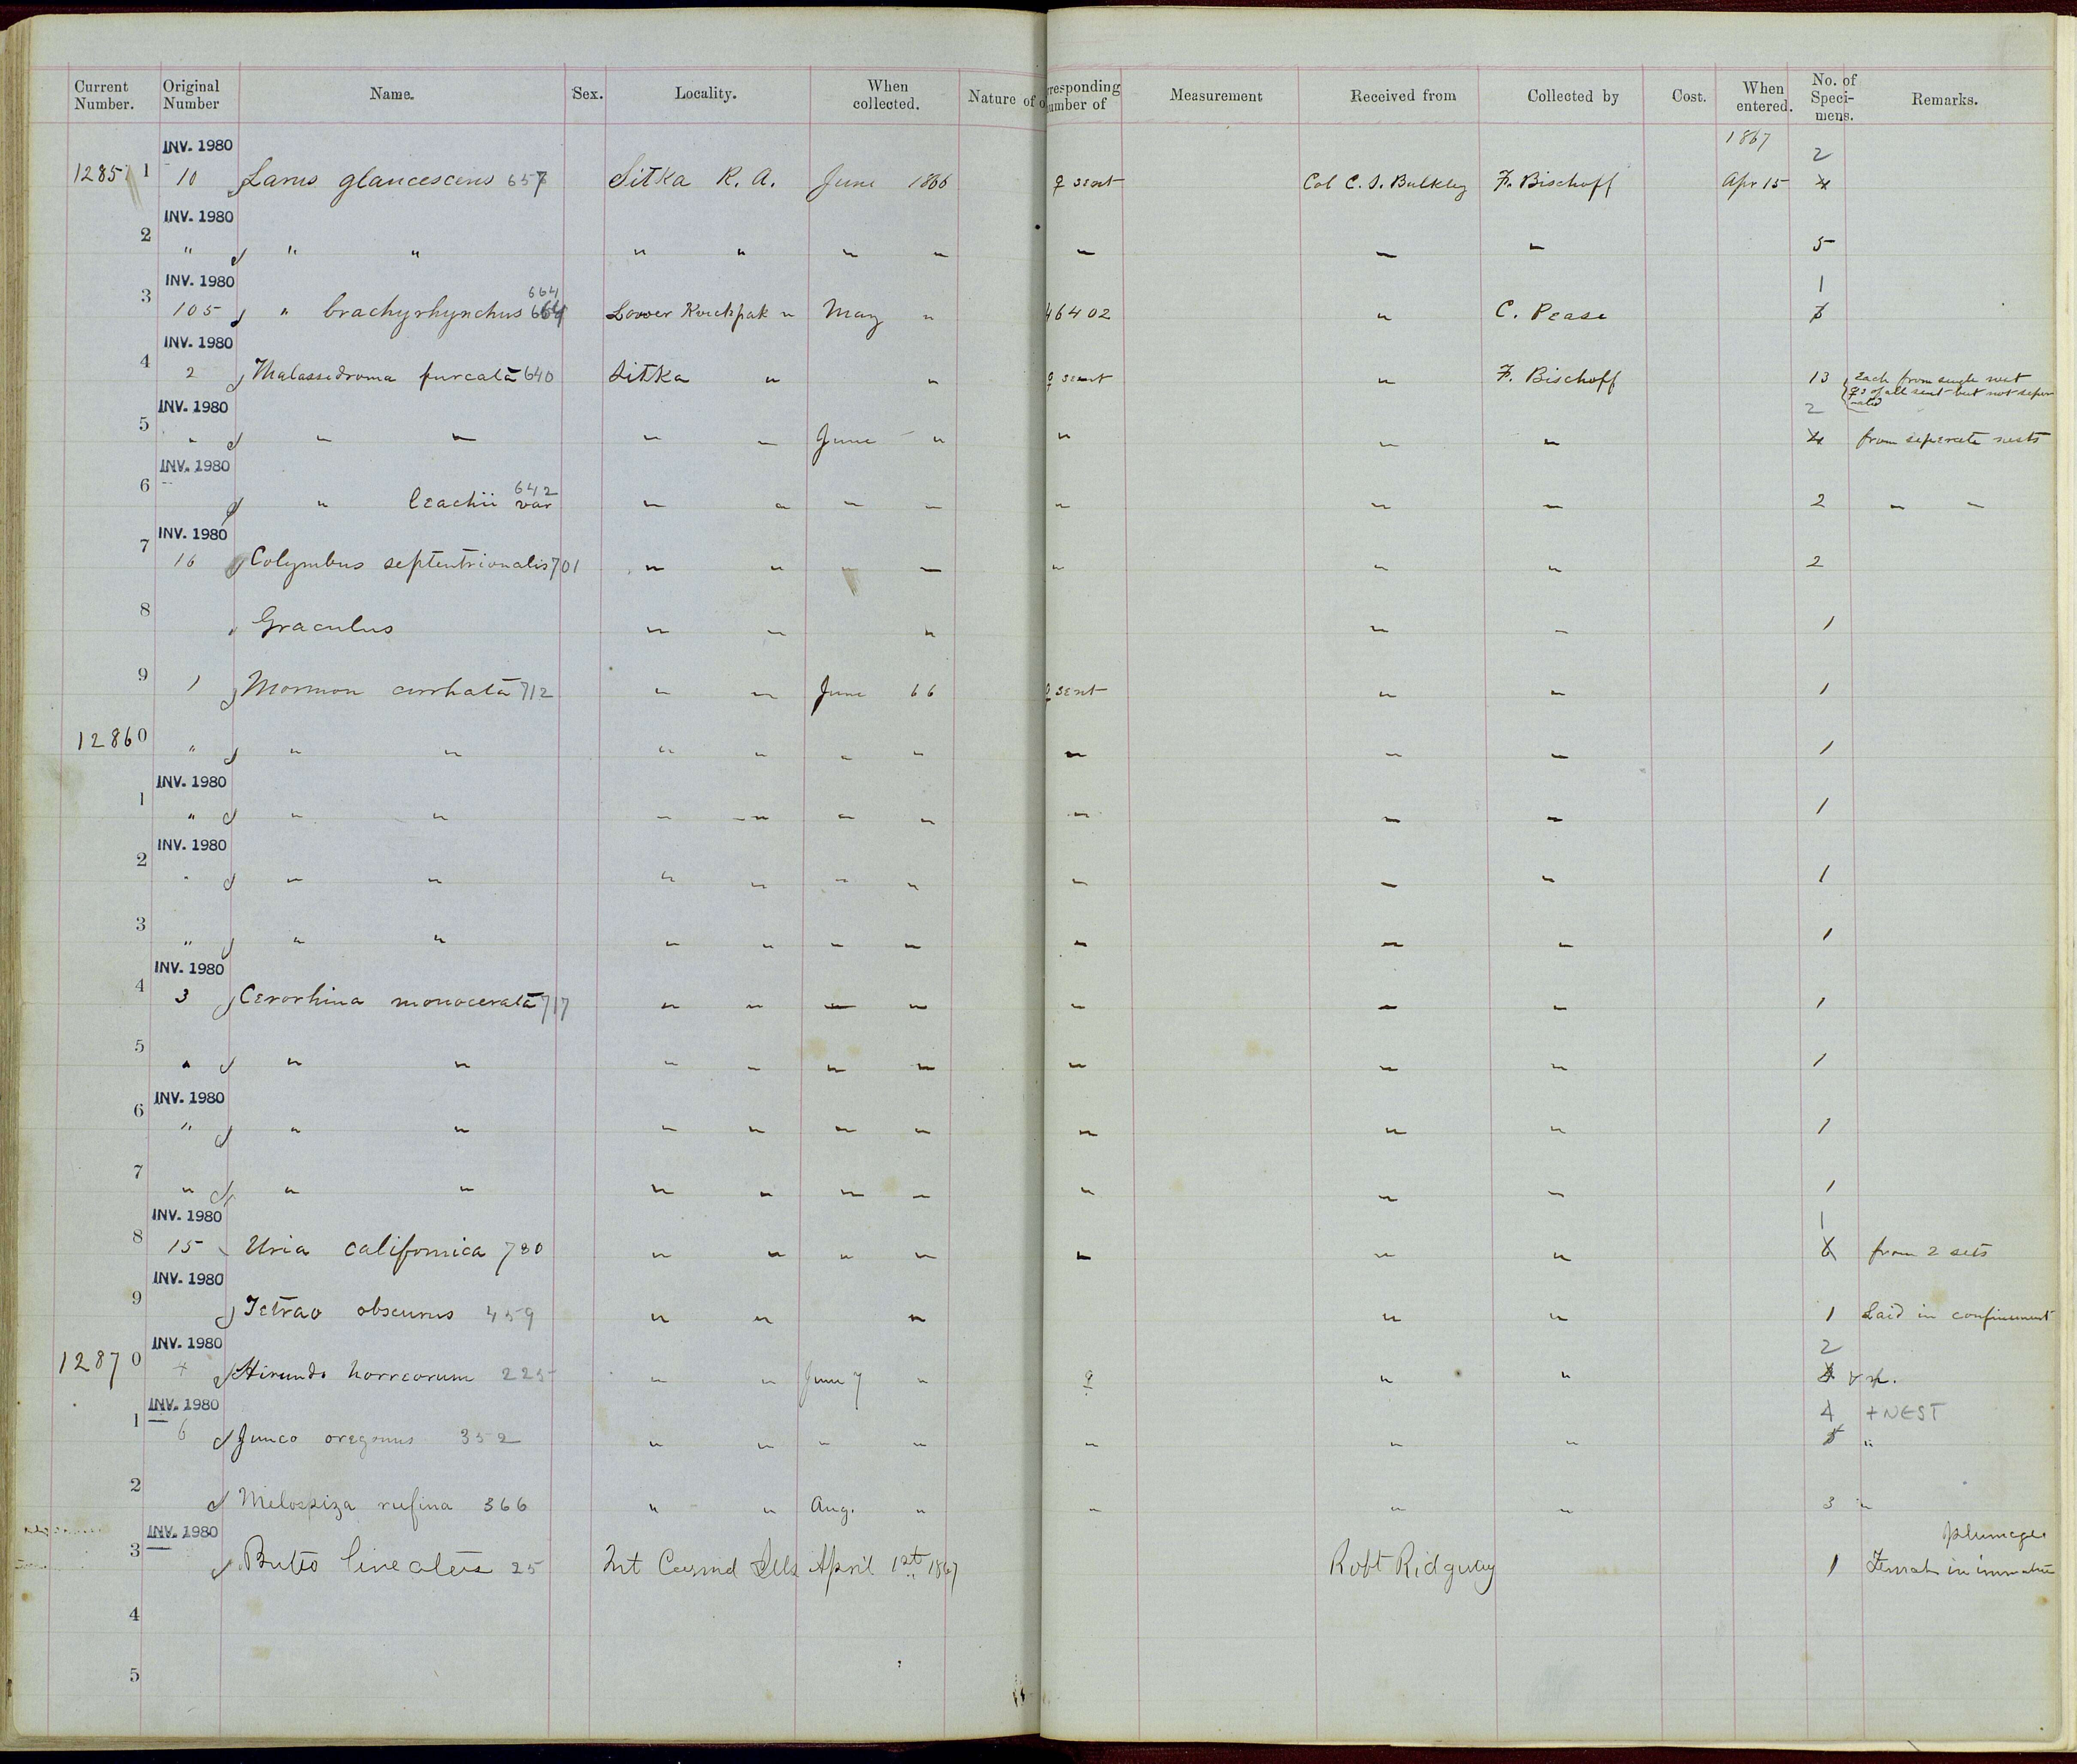 Current Number. Original Number Name. Sex. Locality. When collected. Nature of o rresponding umber of Measurement Received from Collected by Cost. When entered. No. of Speci-mens. Remarks.
INV. 1980 1867 2
12851 10 Larus glaucescens 657 Sitka R. A. June 1866 ♀ sent Col C. S. Bulkley F. Bischoff Apr 15
INV. 1980
2 " " " " " " " " " " 5
INV. 1980 664 1
3 105 " brachyrhynchus 664 Lower Kvichpak " May " 46402 " C. Pease
INV. 1980
4 2 Thalassidroma furcata 640 Sitka " " ♀ sent " F. Bischoff 13 Each from single nest
♀s of all sent but not seper
ated
INV. 1980 2
5 " " " " " June " " " " 4 from seperate nests
INV. 1980 642
6 " leachii var " " " " " " " 2 " "
INV. 1980
7 16 Colymbus septentrionalis 701 " " " " " " 2
8 Graculus " " " " " 1
9 1 Mormon cirrhata 712 " " June 66 ♀ sent " " 1
12860 " " " " " " " " " " 1
INV. 1980
1 " " " " " " " " " " 1
INV. 1980
2 " " " " " " " " " " 1
3 " " " " " " " " " " 1
INV. 1980
4 3 Cerorhina monocerata 717 " " " " " " " 1
5 " " " " " " " " " " 1
INV. 1980
6 " " " " " " " " " " 1
7 " " " " " " " " " " 1
INV. 1980 1
8 15 Uria californica 730 " " " " " " " 6 from 2 sets
INV. 1980
9 Tetrao obscurus 459 " " " " " 1 Laid in confinement
INV. 1980 2
12870 + Hirundo horreorum 225 " " June 7 " ♀ " "
INV. 1980 4 + NEST
1 6 Junco oregonus 352 " " " " " " " 5 "
2 Melospiza rufina 366 " " Aug. " " " " 3 "
INV. 1980 plumage
3 Buteo lineatus 25 Mt Carmel Ills April 1st 1867 Robt Ridgway 1 Female in immature
4
5